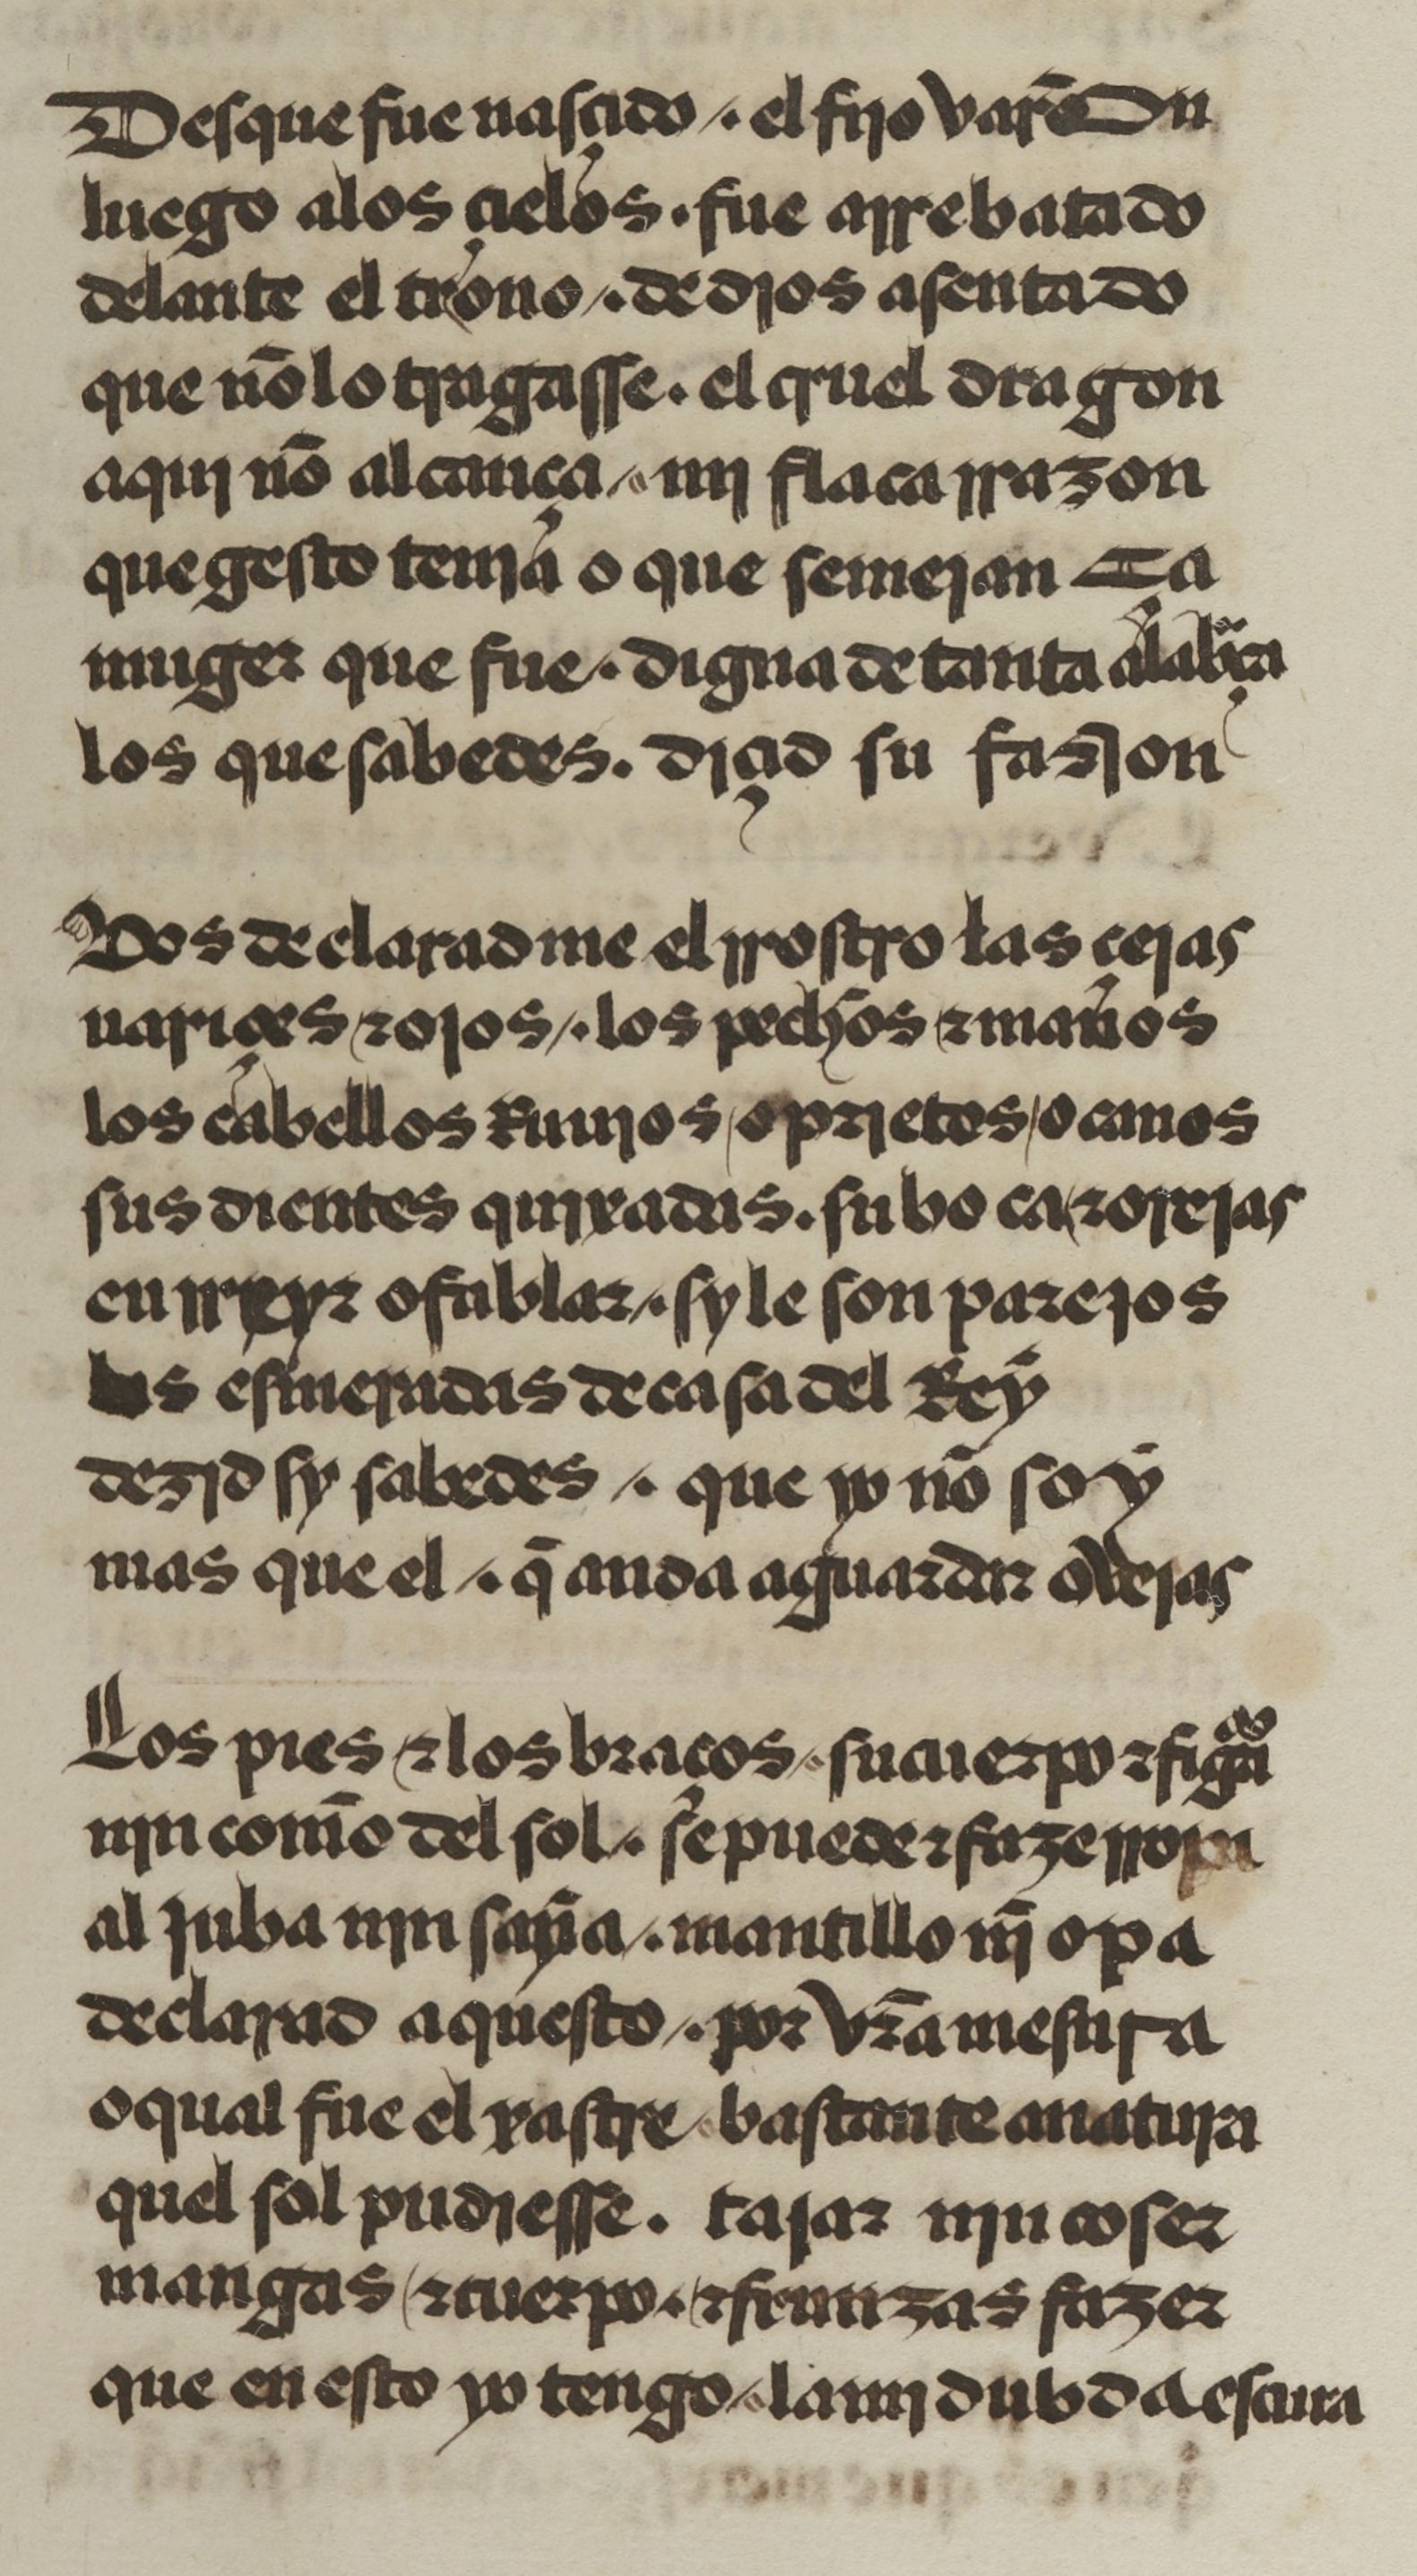 Desque fue nasçido /. el fijo varõ Dn
luego alos çielos . fue arrebatado
delante el trono /. de dios asentado
que nõ lo tragasse . el cruel dragon
aqui nõ alcança /. mi flaca rrazon
que gesto tenia o que semejança
muger que fue . digna de tanta alabãça
los que sabedes . diçid su fasion
Vos declaradme el rrostro las cejas
narizes τ ojos /. los pechos τ manos
los cabellos Ruuios / o prietos / o canos
sus dientes quixadas . su boca τ orejas
en rreyr o fablar /. sy le son parejos
las esmeradas de casa del Rey
dezid sy sabedes /. que yo nõ soy
mas que el /. q̃ anda aguardar ovejas
Los pies τ los braços /. su cuerpo τ figª
nin comõ del sol /. se puede τ faze rropa
aljuba nin saya /. mantillo nĩ opa
declarad aquesto /. por vr̃a mesura
o qual fue el xastre / bastante a natura
quel sol pudiesse . tajar nin coser
mangas τ cuerpo . τ frunzas fazer
que en esto yo tengo / la mi dubda escura